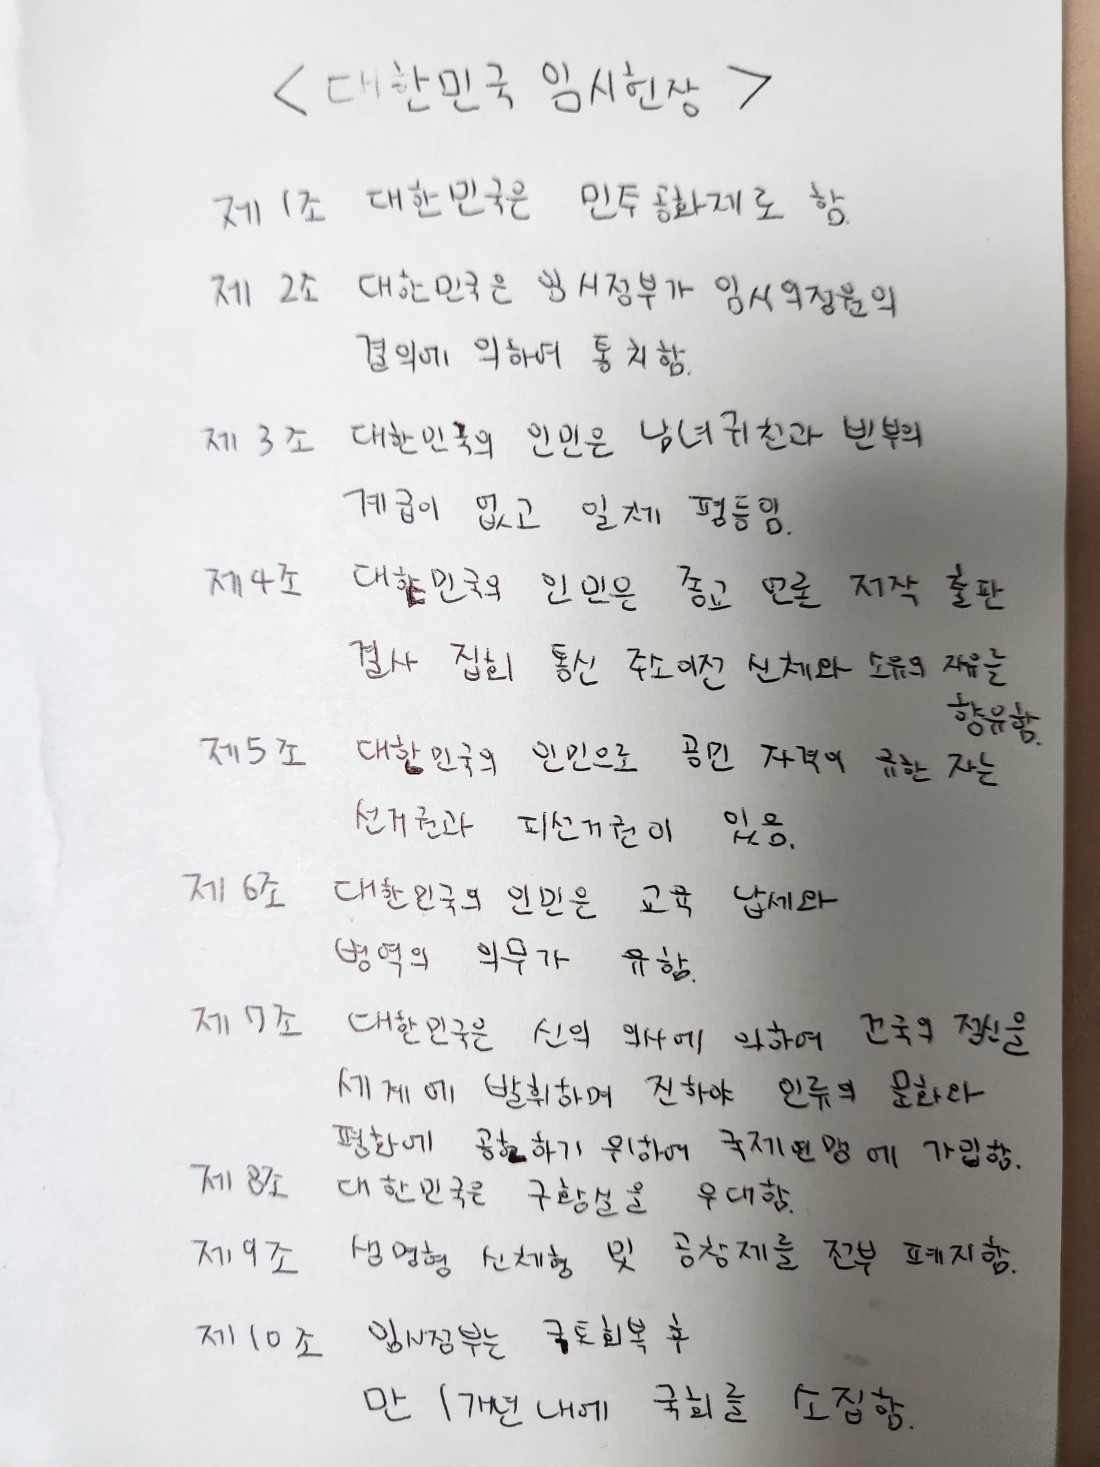 < 대한민국 임시헌장 >
제 1조 대한민국은 민주공화제로 함.
제 2조 대한민국은 임시정부가 임시의정원의
결의에 의하여 통치함.
제 3조 대한민국의 인민은 남녀귀천과 빈부의
계급이 없고 일체 평등임.
제 4조 대한민국의 인민은 종교 언론 저작 출판
결사 집회 통신 주소이전 신체와 소유의 자유를
향유함.
제 5조 대한민국의 인민으로 공민 자격이 유한 자는
선거권과 피선거권이 있음.
제 6조 대한민국의 인민은 교육 납세와
병역의 의무가 유함.
제 7조 대한민국은 신의 의사에 의하여 건국의 정신을
세계에 발휘하며 진하야 인류의 문화와
평화에 공헌하기 위하여 국제연맹에 가입함.
제 8조 대한민국은 구황실을 우대함.
제 9조 생명형 신체형 및 공창제를 전부 폐지함.
제 10조 임시정부는 국토회복 후
만 1개년 내에 국회를 소집함.